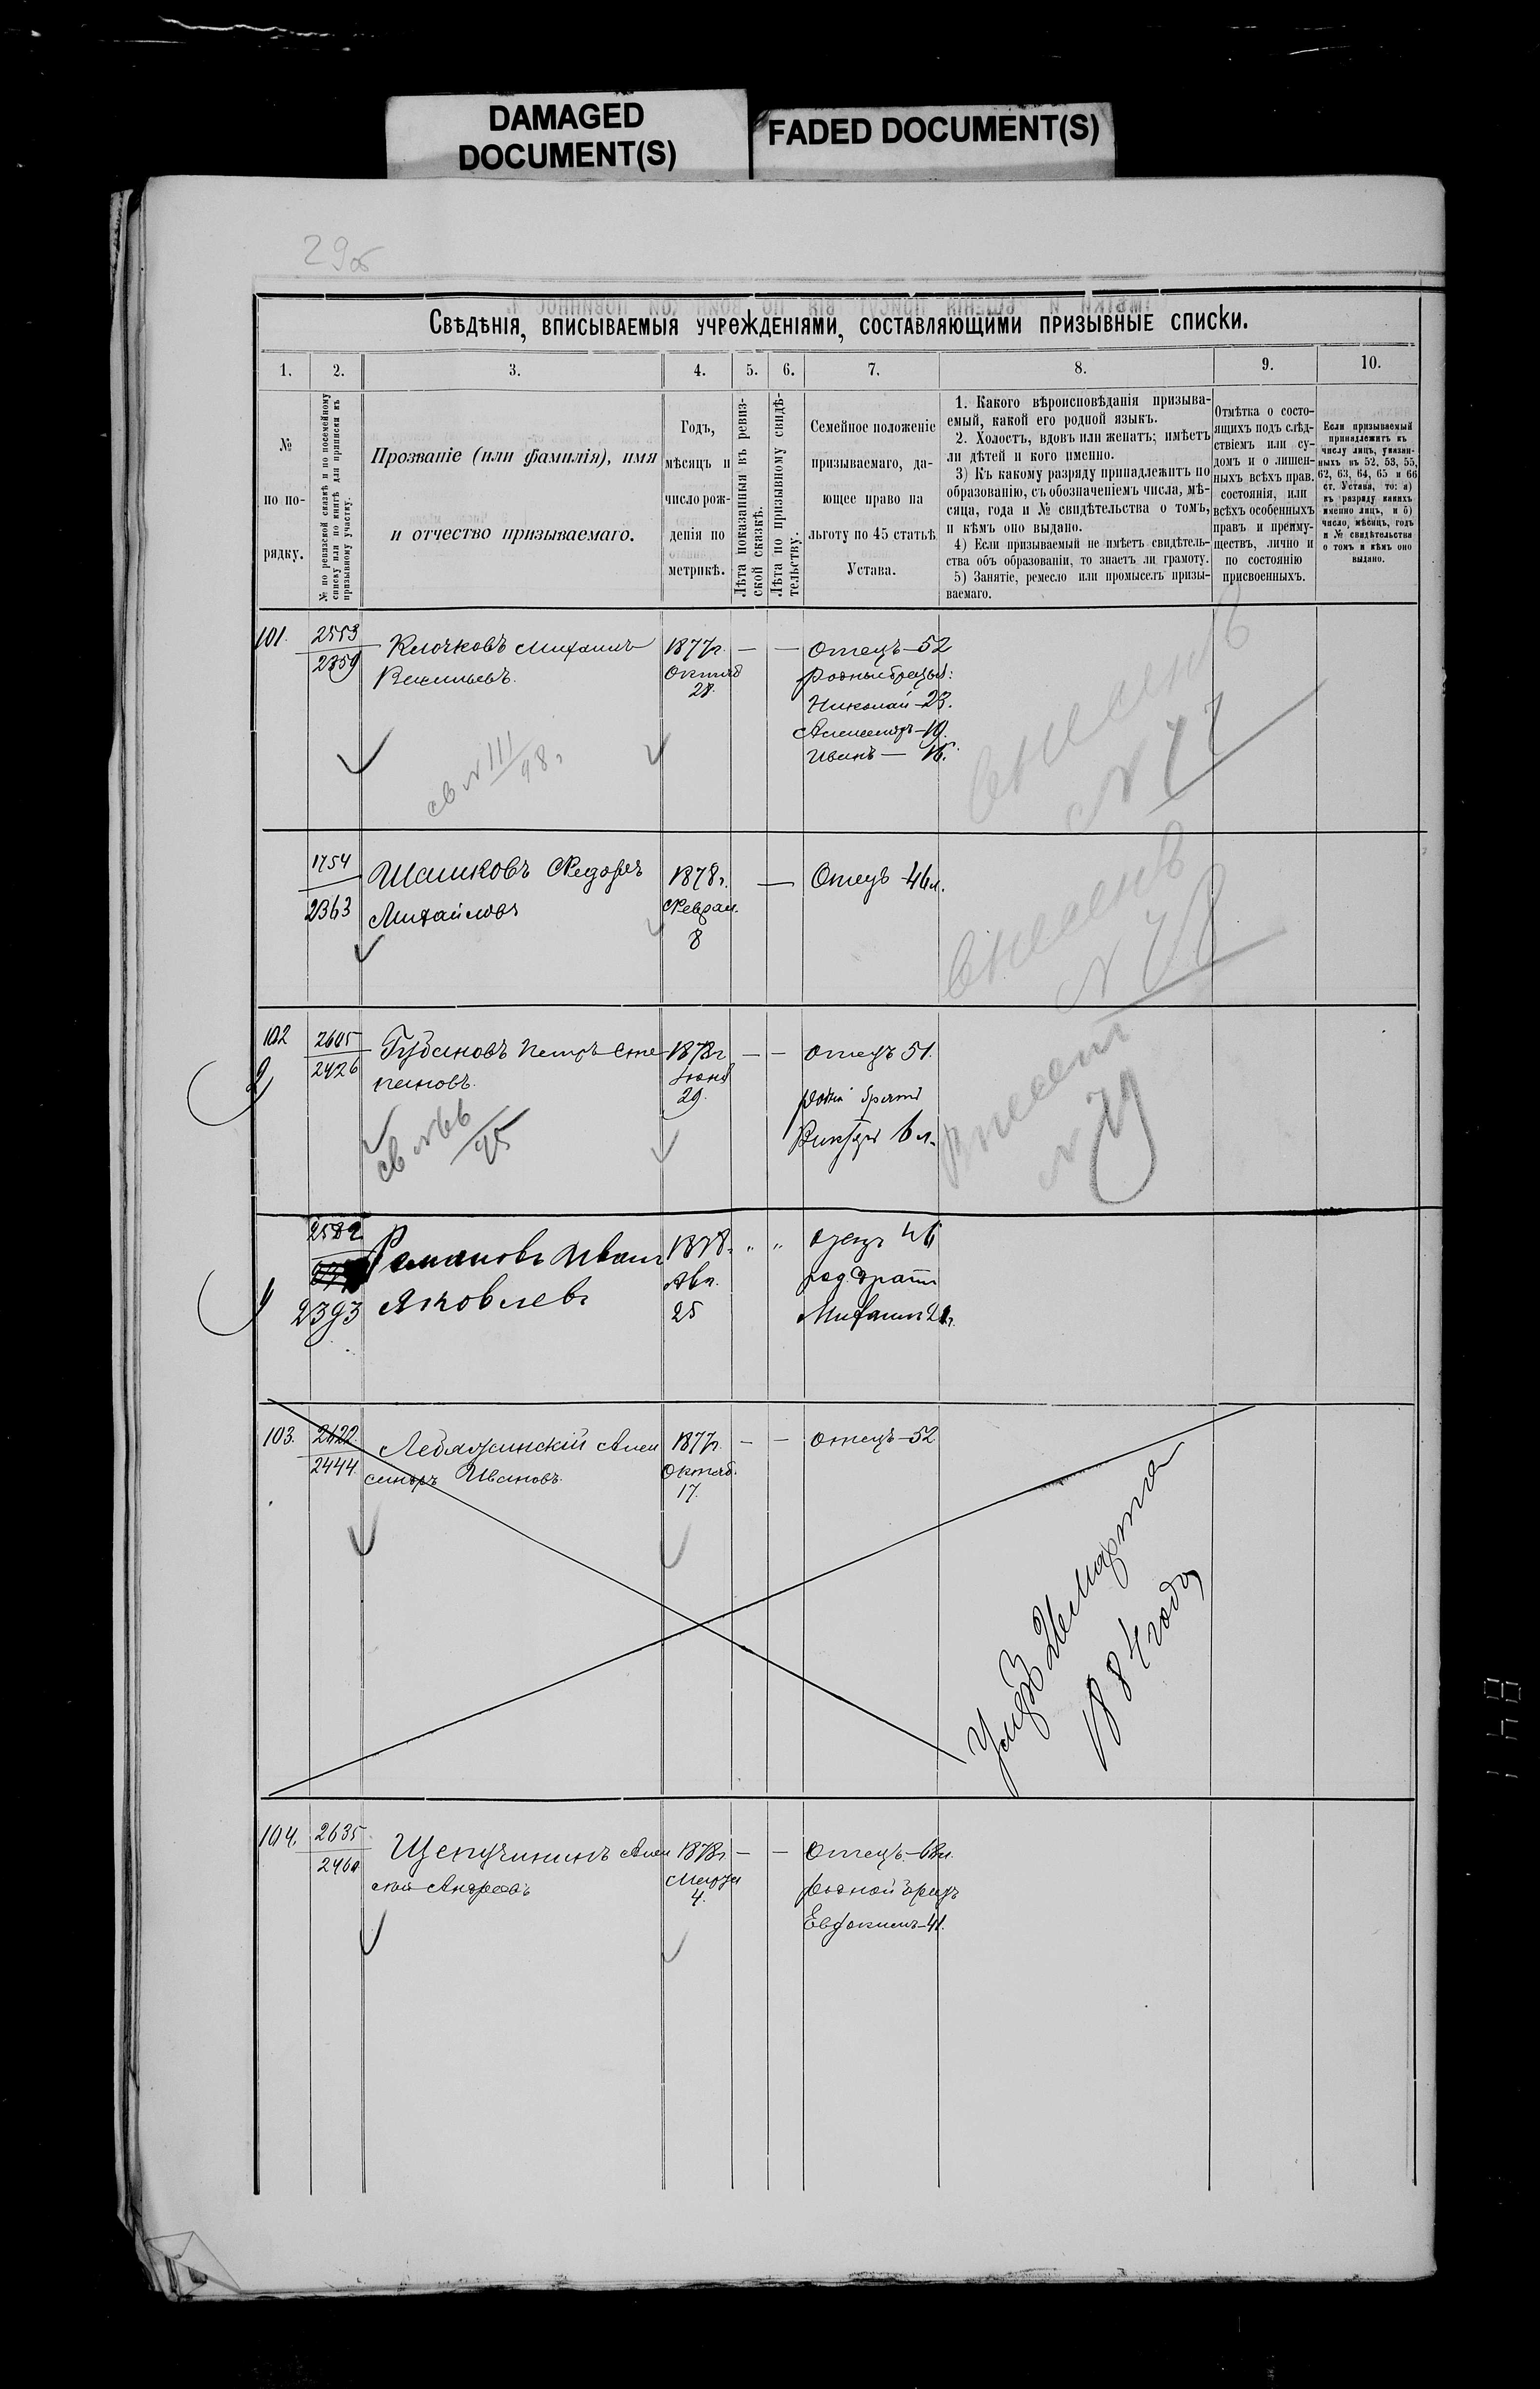 DAMAGED
DOCUMENT(S)
FADED DOCUMENT(S)
29об
Свѣдѣнія, вписываемыя учрежденіями, составляющими призывные списки.
1. 2. 3. 4. 5. 6. 7. 8. 9. 10.
№
по по-
рядку.
№ по ревизской сказкѣ и по посемейному
списку или по книгѣ для приписки къ
призывному участку.
Прозваніе (или фамилія), имя
и отчество призываемаго.
Годъ,
мѣсяцъ и
число рож-
денія по
метрикѣ.
Лѣта показанныя въ ревиз-
ской сказкѣ.
Лѣта по призывному свидѣ-
тельству.
Семейное положеніе
призываемаго, да-
ющее право на
льготу по 45 статьѣ
Устава.
1. Какого вѣроисповѣданія призыва-
емый, какой его родной языкъ.
2. Холостъ, вдовъ или женатъ; имѣетъ
ли дѣтей и кого именно.
3) Къ какому разряду принадлежитъ по
образованію, съ обозначеніемъ числа, мѣ-
сяца, года и № свидѣтельства о томъ,
и кѣмъ оно выдано.
4) Если призываемый не имѣетъ свидѣтель-
ства объ образованіи, то знаетъ ли грамоту.
5) Занятіе, ремесло или промыселъ призы-
ваемаго.
Отмѣтка о состо-
ящихъ подъ слѣд-
ствіемъ или су-
домъ и о лишен-
ныхъ всѣхъ прав.
состоянія, или
всѣхъ особенныхъ
правъ и преиму-
ществъ, лично и
по состоянію
присвоенныхъ.
Если призываемый
принадлежитъ къ
числу лицъ, указан-
ныхъ въ 52, 53, 55,
62, 63, 64, 65 и 66
ст. Устава, то: а)
къ разряду какихъ
именно лицъ, и б)
число, мѣсяцъ, годъ
и № свидѣтельства
о томъ и кѣмъ оно
выдано.
101. 2553 Клочковъ Михаилъ 1877г. — — Отецъ—52
2359 Васильевъ. Октяб
28.
Родные братья:
Николай—23.
Александръ—19.
Иванъ—16.
св № 111/98г
внесенъ
№ 77
1754 Шашковъ Федоръ 1878г. — Отецъ 46л.
2363 Михайловъ Феврал.
8
внесенъ
№ 78
102 2605 Губановъ Петръ Сте- 1878г. — — Отецъ 51.
2426 пановъ. Іюня
29.
родной братъ
Викторъ 6л.
св №66/95
Внесенъ
№ 79
2582 Романовъ Иванъ 1878г. " " Отецъ 46
2393 Яковлевъ Авг.
25
род. братъ
Михаилъ
103. 2622 Лебяжинскій Алек 1877г. — — Отецъ—52
2444. сандръ Ивановъ. Октяб.
17.
Умеръ Марта
1884 года
104. 2635 Щепучининъ Алек 1878г. — — Отецъ—68л.
2460 сѣй Андреевъ Марта
4.
Родной братъ
Евдокимъ—41.